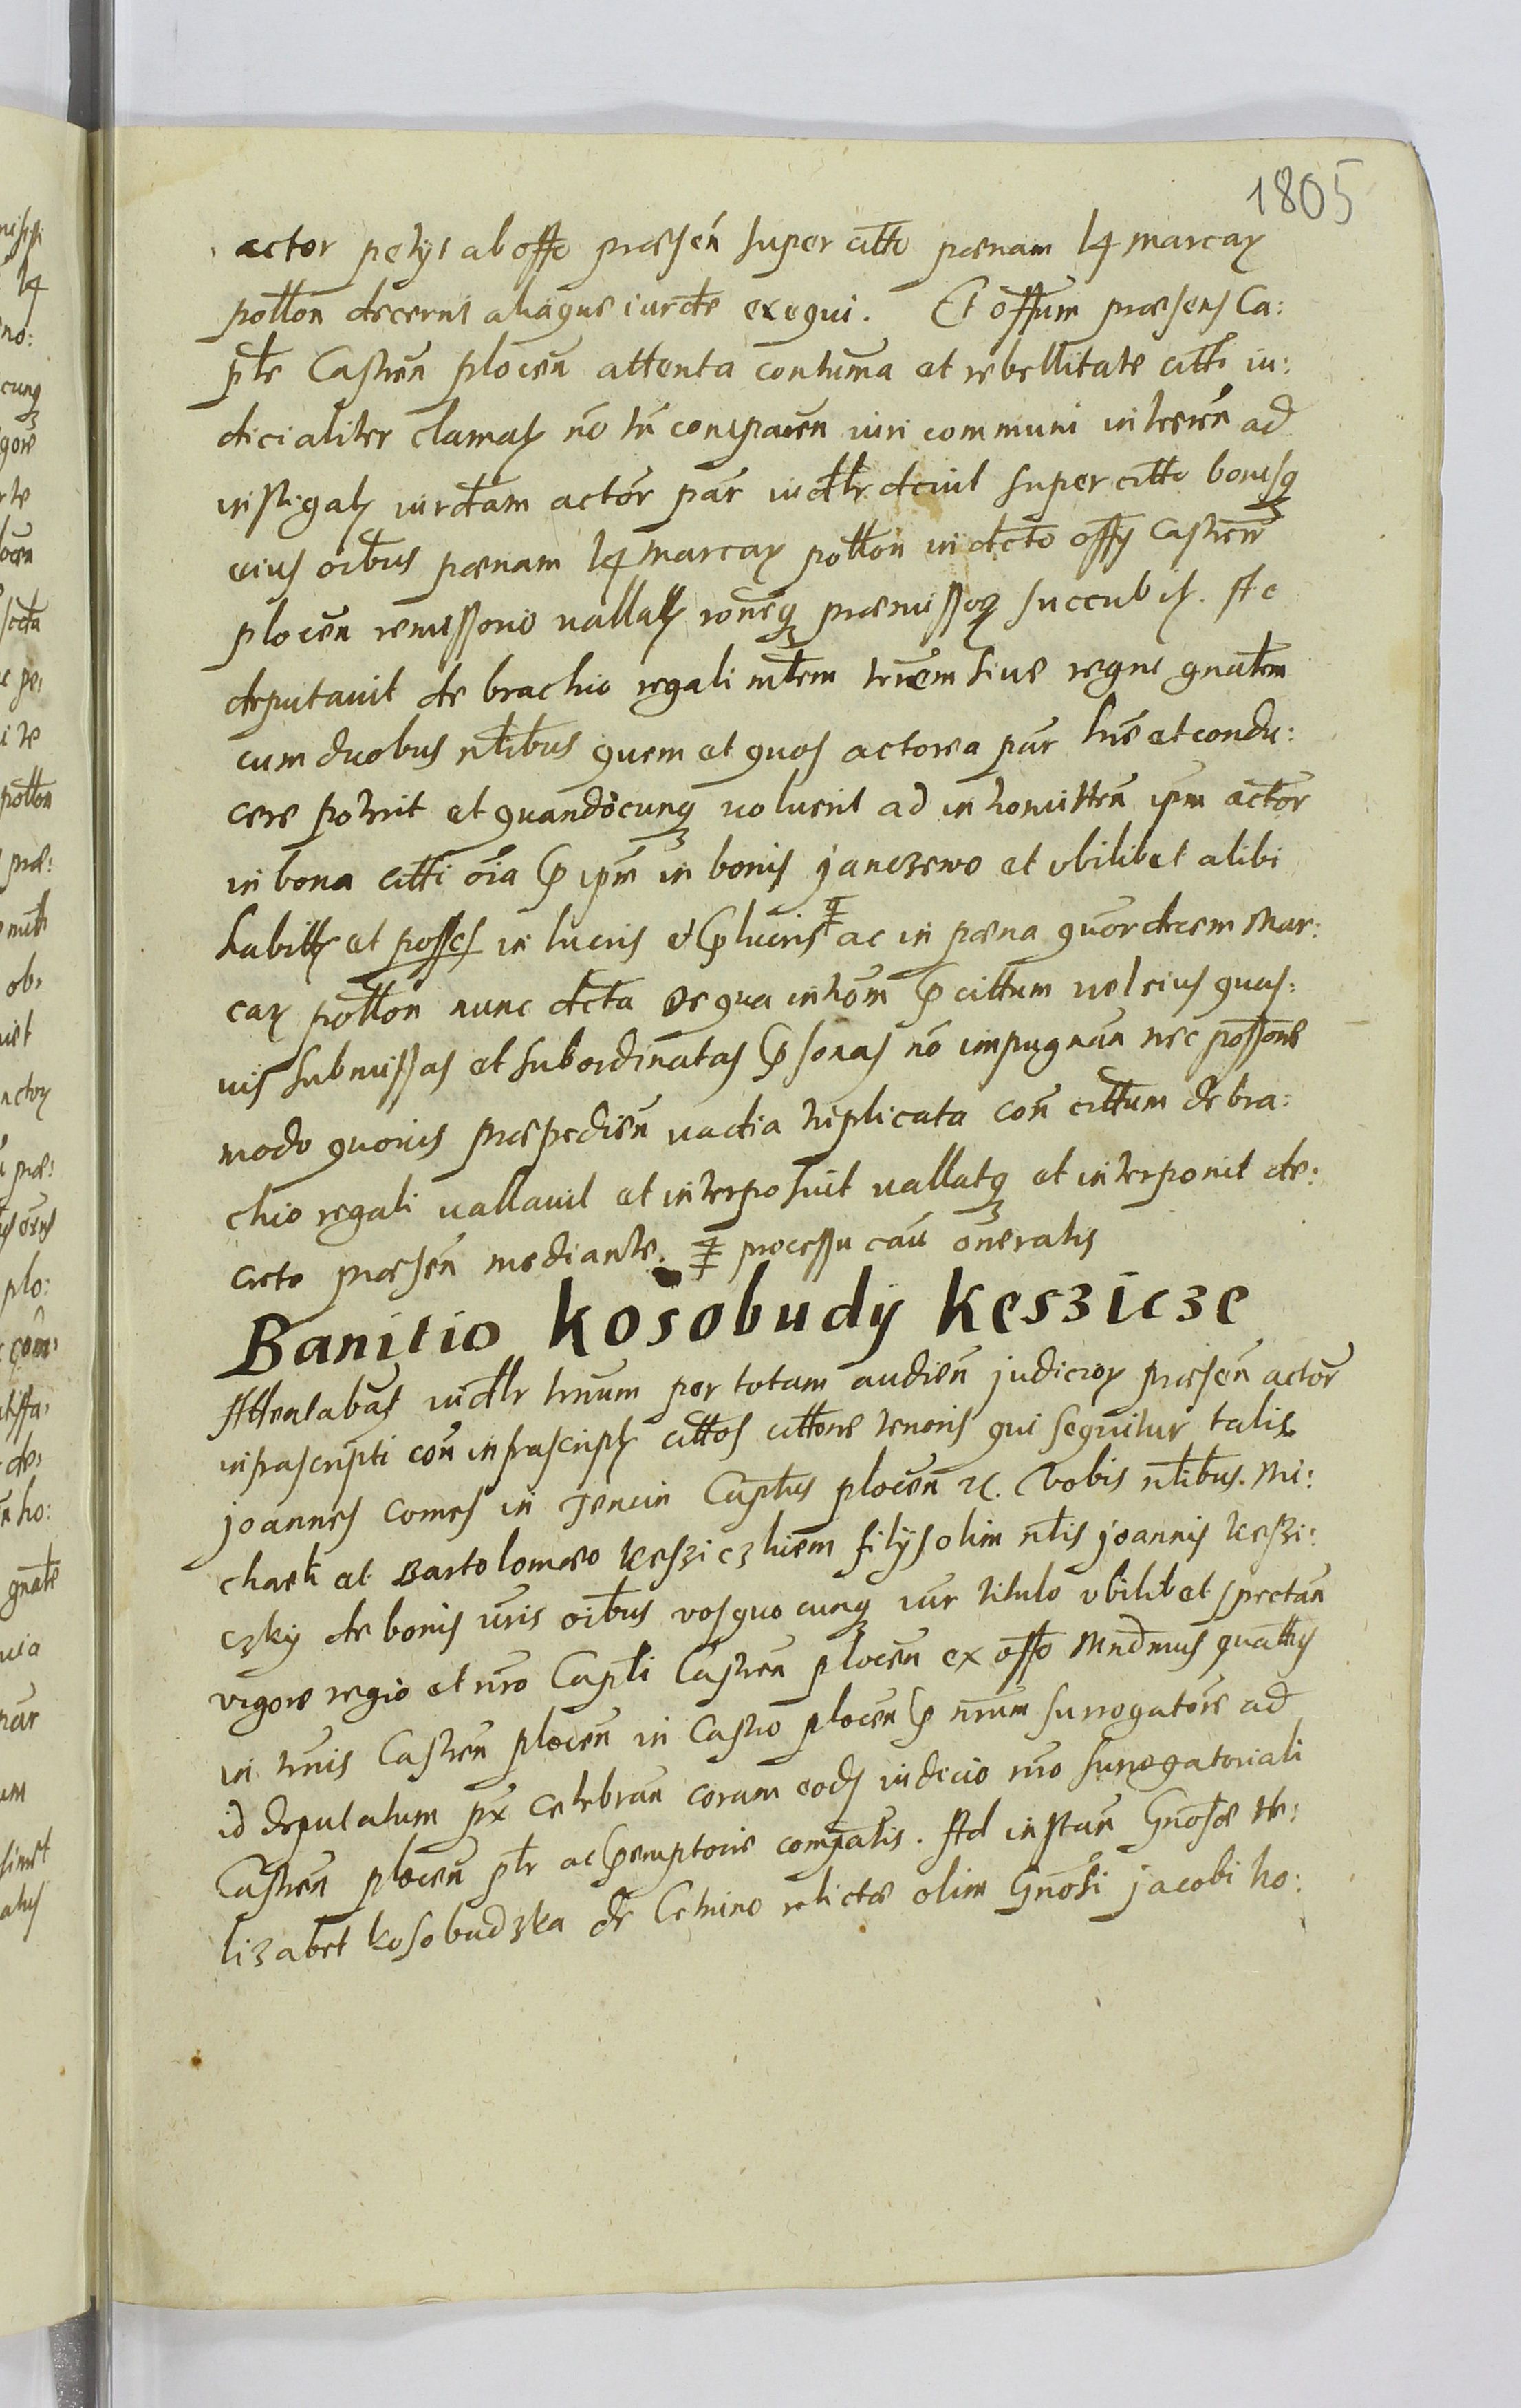 1805
actor petijt ab offo præsen̄ super citto pœnam 14 marcar
potton decerni aliaque iurdte exequi. Et offum præsens Ca:
ptle Castren̄ plocen̄ attenta contuma et rebellitate citti iu:
dicialiter clamat no tn̄ comparen̄ iuri communi inhæren̄ ad
instigat iurdtam actor par iudtlr dciuit super citto bonisq
eius oibus pœnam 14 marcar potton in dcto offij Castren̄
plocen̄ remissorio uallat roneq præmissor succubit. Ac
deputauit de brachio regali mtem terrem siue regni gnatem
cum duobus ntibus quem et quos actorea par hre et condu:
cere poterit et quandocunq uoluerit ad intromitten̄ ipm actor
in bona citti oia p ipm in bonis janczewo et vbilibet alibi
habitt et posses in lucris et plucris ac in pœna quordecem Mar:
car potton nunc dcta De qua introm p cittum uel eius quas:
uis submissas et subordinatas psonas no impugnan nec possone
modo quouis præpedien̄ uadia triplicata con cittum de bra:
chio regali uallauit et interposuit uallatq et interponit de:
creto præsen̄ mediante. processu cau oneratis
Banitio kosobudÿ kesziczе
Attentabat iudtlr trnum per totam audien̄ judicior præsen̄ actor
infrascripti con infrascript cittos cittone tenoris qui sequitur talis
joannes comes in Tencin Captus plocen̄ rc. Vobis ntibus. Mi:
chaeli et Bartolomæo Kesziczkiem filijs olim ntis joannis keszi:
czkÿ de bonis uris oibus vosquocunq iur titulo vbilibet spectan
vigore regio et nro Capti Castren̄ plocen̄ ex offo Mndmus quattus
in trnis Castren̄ plocen̄ in Castro plocen̄ p nrum surrogatore ad
id deputatum px celebran coram eods iudicio nro surrogatoriali
Castren̄ plocen̄ ptr ac pemptorie compatis. Ad instan̄ Gnosæ He:
lizabet kosobudzka de Cetnino relictæ olim Gnosi jacobi ko: